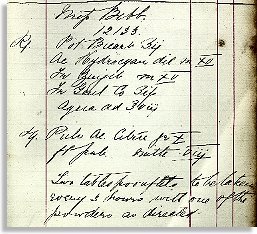 Miss Bebb.
12133.
Rx. Pot Bicarb ʒij
Ac Hydrocyan dil m XV
Tr Zingib m XV
In Gent Co ʒij
Aqua ad ʒviij
Pulv Ac Citric gr X
ft pulv mitte viij
Two tablespoonfuls to be taken
every 3 hours with one of the
powders as directed.